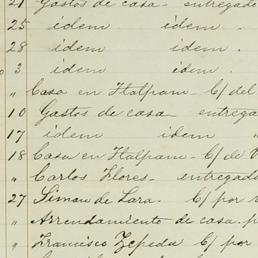 21 Gastos de casa - entregado
25 idem idem.
28 idem idem.
3 idem idem.
" Casa en Tlalpam - C/ del
10 Gastos de casa - entrega
17 idem idem "
18 Casa en Tlalpam - C/ de V
" Carlos Flores - entregad
27 Simon de Lara. C/ por
" Arrendamiento de casa. p
" Francisco Zepeda C/ por